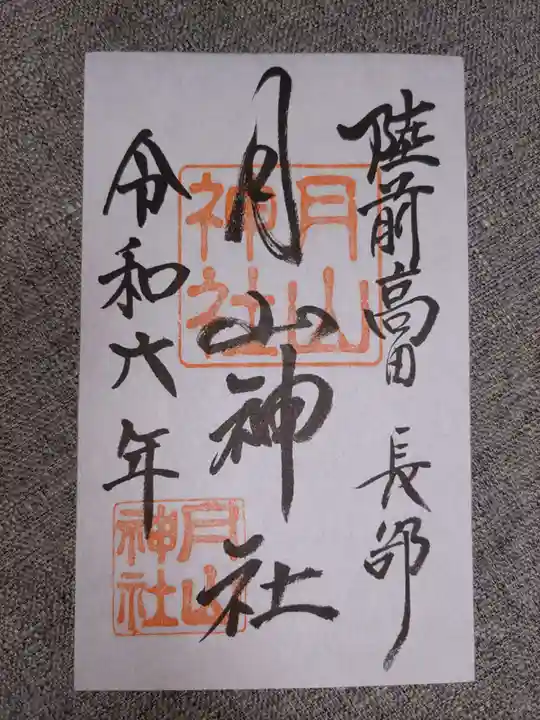 陸前高田 長部
月山神社
令和六年
月山
神社
月山
神社